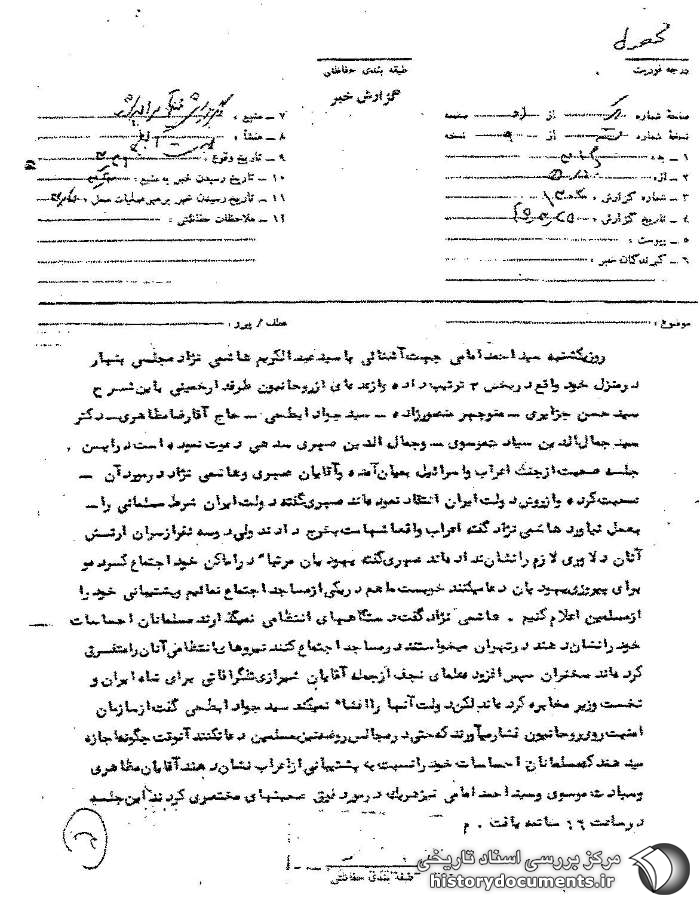 درجه فوریت
طبقه بندی حفاظتی
گزارش خبر
صفحه شماره از صفحه
نسخه شماره از نسخه
۱ ـ به :
۲ ـ از :
۳ ـ شماره گزارش :
۴ ـ تاریخ گزارش :
۵ ـ پیوست :
۶ ـ گیرندگان خبر :
۷ ـ منبع :
۸ ـ منشأ :
۹ ـ تاریخ وقوع :
۱۰ ـ تاریخ رسیدن خبر به منبع :
۱۱ ـ تاریخ رسیدن خبر برهبر عملیات محل :
۱۲ ـ ملاحظات حفاظتی :
موضوع :
عطف / پیرو :
روز یکشنبه سید احمد امامی جهت آشنائی با سید عبدالکریم هاشمی نژاد مجلسی بنهار
در منزل خود واقع در بخش ۳ ترتیب داده و از عده ای از روحانیون طرفدار خمینی باین شرح
سید حسن جزایری ـ منوچهر منصورزاده ـ سید جواد ابطحی ـ حاج آقا رضا مظاهری ـ دکتر
سید جمال الدین سیادت موسوی ـ وجمال الدین صهری سدهی دعوت نموده است در ایسن
جلسه صحبت از جنگ اعراب و اسرائیل بمیان آمده و آقایان صهری و هاشمی نژاد در مورد آن ـ
صحبت کرده و از روش دولت ایران انتقاد نموده اند صهری گفته دولت ایران شرط مسلمانی را ـ
بعمل نیاورد هاشمی نژاد گفته اعراب واقعا شهامت بخرج دادند ولی دو سه نفر از سران ارتش
آنان دلاوری لازم را نشان نداده اند صهری گفته یهودیان مرتبا" در اماکن خود اجتماع کرده و
برای پیروزی یهودیان دعا میکنند خوبست ما هم در یکی از مساجد اجتماع نمائیم و پشتیبانی خود را
از مسلمین اعلام کنیم . هاشمی نژاد گفت دستگاههای انتظامی نمیگذارند مسلمانان احساسات
خود را نشان دهند در تهران میخواستند در مساجد اجتماع کنند نیروهای انتظامی آنان را متفرق
کرده اند سخنران سپس افزود علمای نجف از جمله آقایان شیرازی تلگرافاتی برای شاه ایران و
نخست وزیر مخابره کرده اند لکن دولت آنها را افشا" نمیکند سید جواد ابطحی گفت از سازمان
امنیت روی روحانیون فشار میآورند که حتی در مجالس روضه نیز مسلمین دعا نکنند آنوقت چگونه اجازه
میدهند که مسلمانان احساسات خود را نسبت به پشتیبانی از اعراب نشان دهند آقایان مظاهری
و سیادت موسوی و سید احمد امامی نیز هریک در مورد فوق صحبتهای مختصری کردند این جلسه
در ساعت ۱۶ خاتمه یافت . م
طبقه بندی حفاظتی
مرکز بررسی اسناد تاریخی
historydocuments.ir